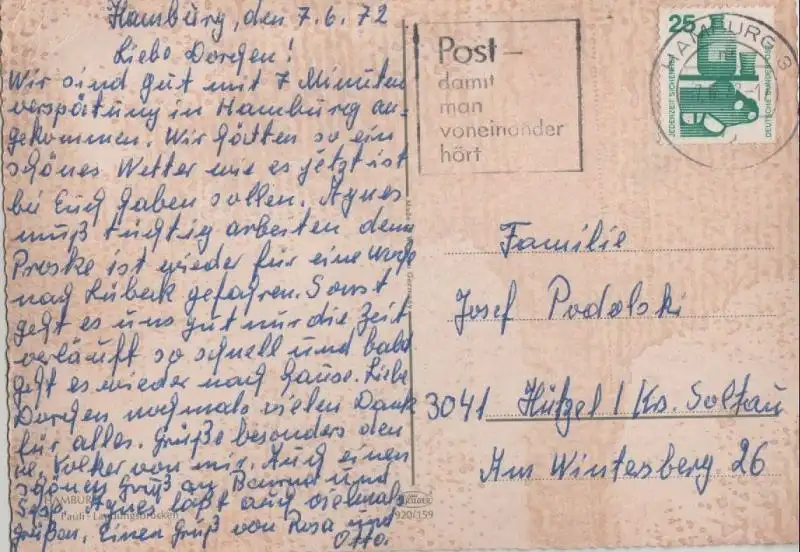 Hamburg, den 7.6.72
Liebe Dorchen!
Wir sind gut mit 7 Minuten
verspätung in Hamburg an-
gekommen. Wir hätten so ein
schönes Wetter wie es jetzt ist
bei Euch haben sollen. Agnes
muß tüchtig arbeiten denn
Proske ist wieder für eine Woche
nach Lübeck gefahren. Sonst
geht es uns gut nur die Zeit
verläuft so schnell und bald
geht es wieder nach Hause. Liebe
Dorchen nochmals vielen Dank
für alles. Grüße besonders den
Volker von mir. Auch einen
schönen Gruß an und
Agnes läßt auch vielmals
grüßen. Einen Gruß von Rosa und
Otto.
HAMBURG
Pauli - Landungsbrücken
920/159
Post -
damit
man
voneinander
hört
HAMBURG 3
25
JEDERZEIT SICHERHEIT
DEUTSCHE BUNDESPOST
Familie
Josef Podolski
3041 Hützel / Krs. Soltau
Am Wintesberg 26